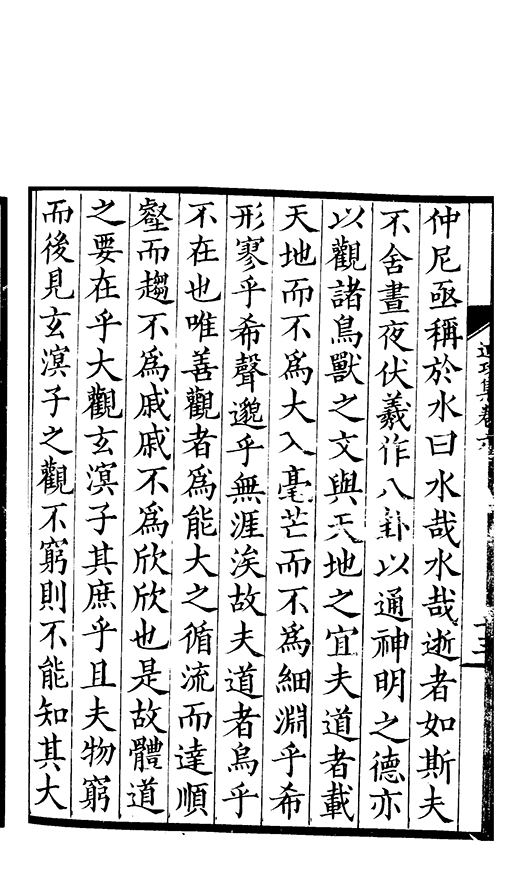 仲尼亟稱於水曰水哉水哉逝者如斯夫
不舍晝夜伏羲作八卦以通神明之德亦
以觀諸鳥獸之文與天地之宜夫道者載
天地而不爲大入毫芒而不爲細淵乎希
形寥乎希聲邈乎無涯涘故夫道者烏乎
不在也唯善觀者爲能大之循流而達順
壑而趨不爲戚戚不爲欣欣也是故體道
之要在乎大觀玄溟子其庶乎且夫物窮
而後見玄溟子之觀不窮則不能知其大